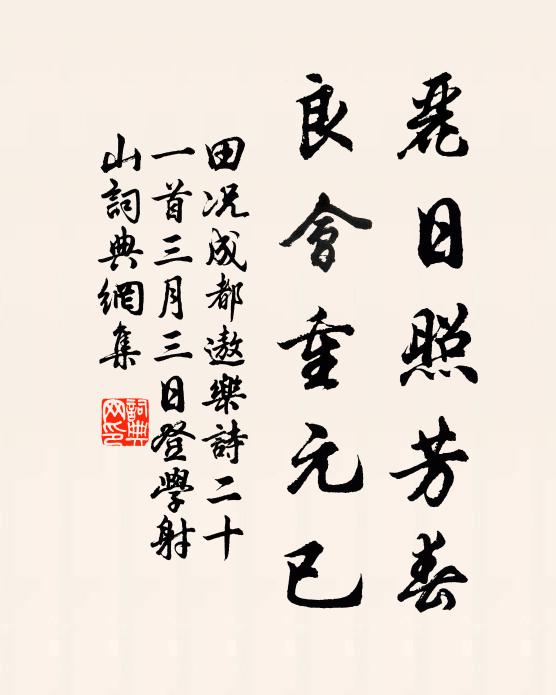 麗日照芳春
良會重元巳
田況成都遨樂詩二十
一首三月三日登學射
山詞典網集
詞典
网印